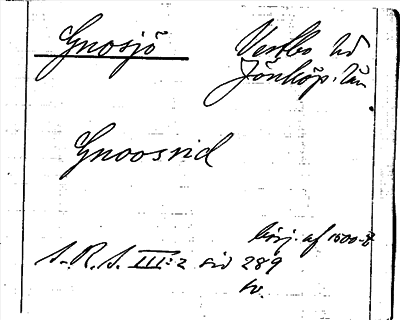 Gnosjö
Västbo hd
Jönköp. län
Gnoosrid
börj. af 1500-t
S.R.S. III:2 sid 289
sv.